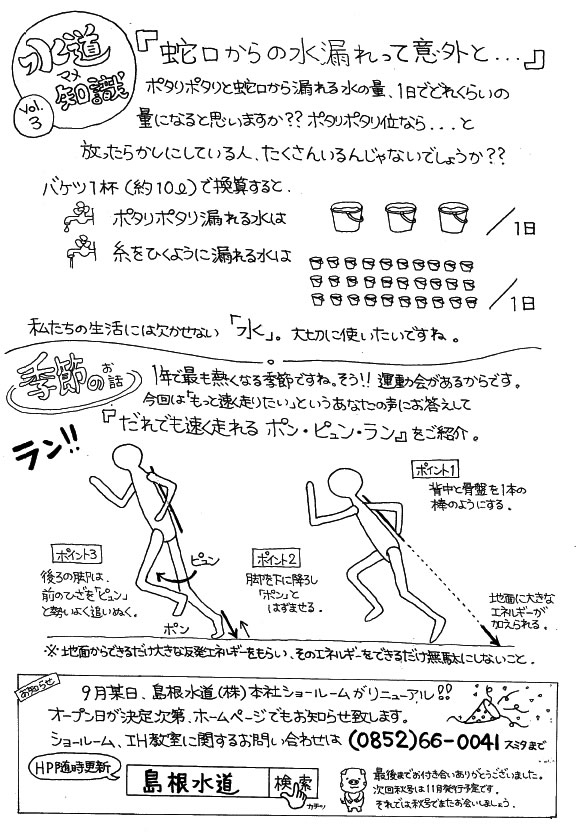 水道
マメ
知識
vol.3
『蛇口からの水漏れって意外と...』
ポタリポタリと蛇口から漏れる水の量、1日でどれくらいの
量になると思いますか??ポタリポタリ位なら...と
放ったらかしにしている人、たくさんいるんじゃないでしょうか??
バケツ1杯(約10ℓ)で換算すると、
ポタリポタリ漏れる水は
/1日
糸をひくように漏れる水は
/1日
私たちの生活には欠かせない「水」。大切に使いたいですね。
季節のお話
1年で最も熱くなる季節ですね。そう!!運動会があるからです。
今回は「もっと速く走りたい」というあなたの声にお答えして
『だれでも速く走れる ポン・ピュン・ラン』をご紹介。
ラン!!
ポイント1
背中と骨盤を1本の
棒のようにする。
ポイント3
後ろの脚は、
前のひざを「ピュン」
と勢いよく追いぬく。
ピュン
ポン
ポイント2
脚を下に降ろし
「ポン」と
はずませる。
地面に大きな
エネルギーが
加えられる。
※地面からできるだけ大きな反発エネルギーをもらい、そのエネルギーをできるだけ無駄にしないこと。
お知らせ
9月某日、島根水道(株)本社ショールームがリニューアル!!
オープン日が決定次第、ホームページでもお知らせ致します。
ショールーム、IH教室に関するお問い合わせは (0852)66-0041 スミタまで
HP随時更新
島根水道
検索
カチッ
最後までお付き合いありがとうございました。
次回秋号は11月発行予定です。
それでは秋号でまたお会いしましょう。